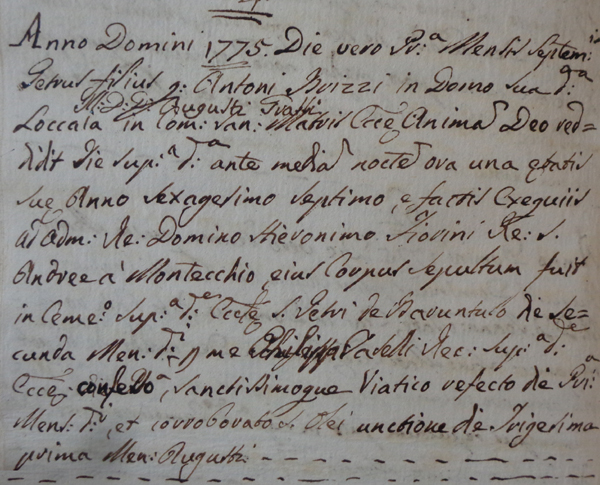 Anno Domini 1775. Die vero Pr:ª Mensis Septem:
Petrus filius q: Antoni Brizzi in Domo sua d:ª
M: D: D: Augusti Gratti
Loccata in Com: san: Matris Eccę Animã Deo red=
didit die sup:ª d:ª ante mediã noctẽ ora una ętatis
suę Anno sexagesimo septimo, e factis Exequiis
ab Adm: Re: Domino Hieronimo Fiorini Re: s.
Andree a Montecchio, eius Corpus sepultum fuit
in Ceme:º sup:ª d:ę Eccłę s. Petri de Varuntulo die se=
cunda Men: d:i p me Tadelli Rec: sup:ª d:ę
Eccę confesso, sanctissimoque Viatico refecto die Pri:ª
Mens: d:i, et corroborato s. Olei unctione die Trigesima
prima Men: Augusti